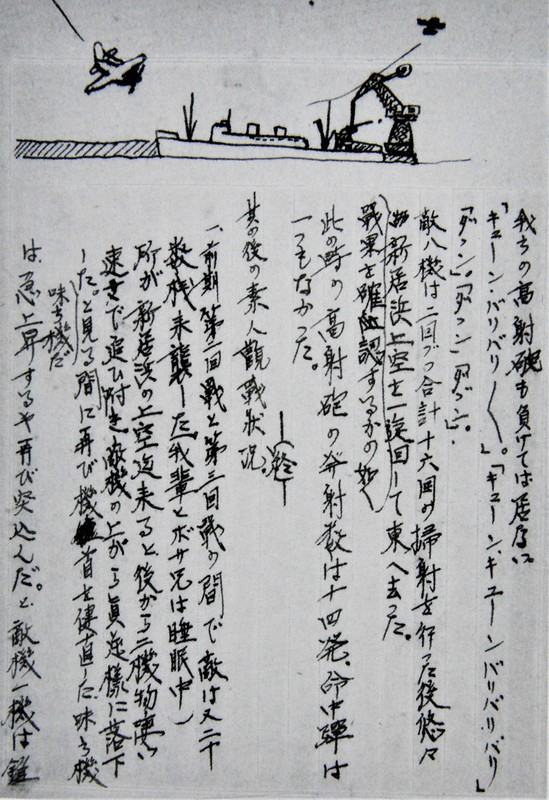 我らの高射砲も負けては居ない
「キューン・バリバリ〱。」「キューン、キューンバリバリバリ」
「ダフン」。「ダフン」「ダブン」。
敵八機は二回づつ合計十六回の掃射を行った後悠々
新居浜上空を一旋回して東へ去った。
戦果を確認するかの如く
此の時の高射砲の発射数は十四発、命中弾は
一つもなかった。
―終―
其の後の素人觀戰狀況
一、前期第二回戰と第三回戰の間で敵は又二十
数機来襲した(我輩とボサ兄は睡眠中)
所が新居浜の上空迄来ると、後から二機物凄い
速さで追ひ附き敵機の上から真逆様に落下
したと見る間に再び機首を建直した味方機
味方機だ
は急上昇するや再び突込んだ。と、敵機一機は錐